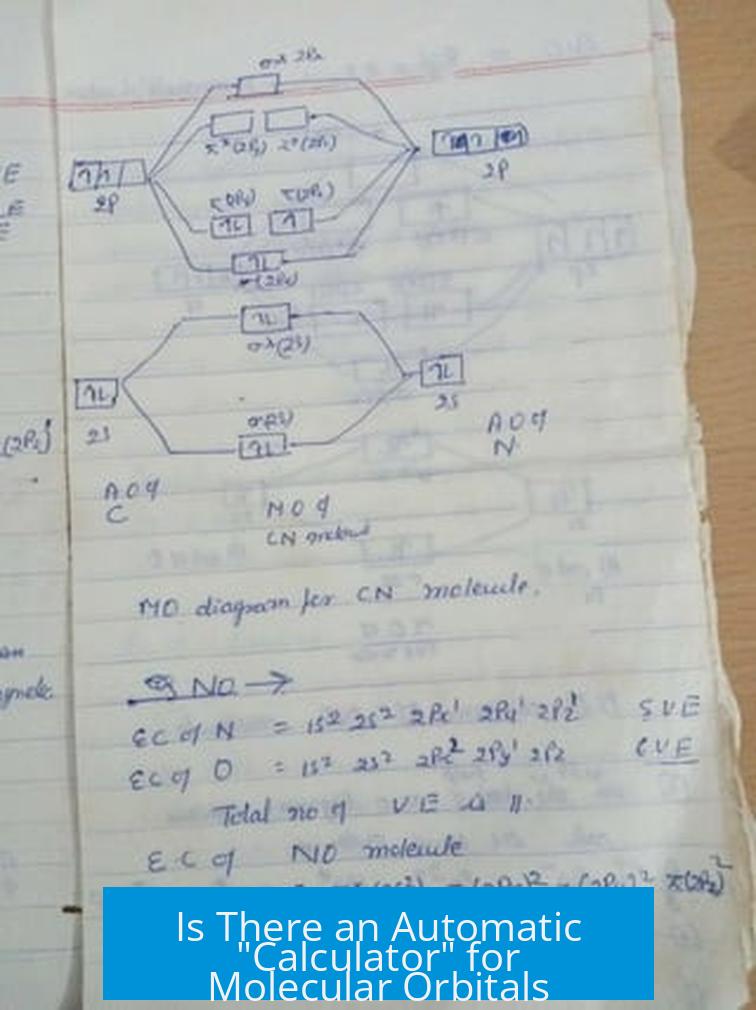 σ* 2Px
π*(2Py) π*(2Pz)
2P
2P
π(2Py) π(2Pz)
σ(2Px)
σ*(2s)
2s
2s
σ(2s)
E
E
E
(2Pz)¹
AO of
N
AO of
C
MO of
CN molecule
MO diagram for CN molecule.
eg NO →
EC of N = 1s² 2s² 2Px¹ 2Py¹ 2Pz¹ 5VE
EC of O = 1s² 2s² 2Px² 2Py¹ 2Pz 6VE
Total no of VE is 11.
EC of NO molecule
π(2Pz)²
Is There an Automatic
"Calculator" for
Molecular Orbitals